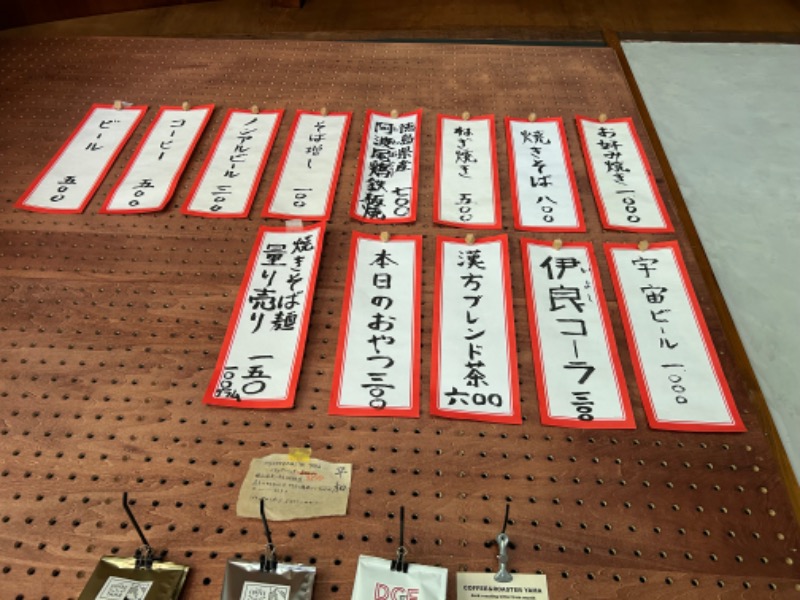 お好み焼き 一〇〇〇
焼きそば 八〇〇
ねぎ焼き 五〇〇
徳島県産
阿波尾鶏鉄板焼
七〇〇
そば増し 一〇〇
ノンアルビール 三〇〇
コーヒー 五〇〇
ビール 五〇〇
宇宙ビール 一〇〇〇
いよし
伊良コーラ 三〇〇
漢方ブレンド茶 六〇〇
本日のおやつ 三〇〇
焼きそば麺
量り売り 一五〇
平和
COFFEE&ROASTER YARD